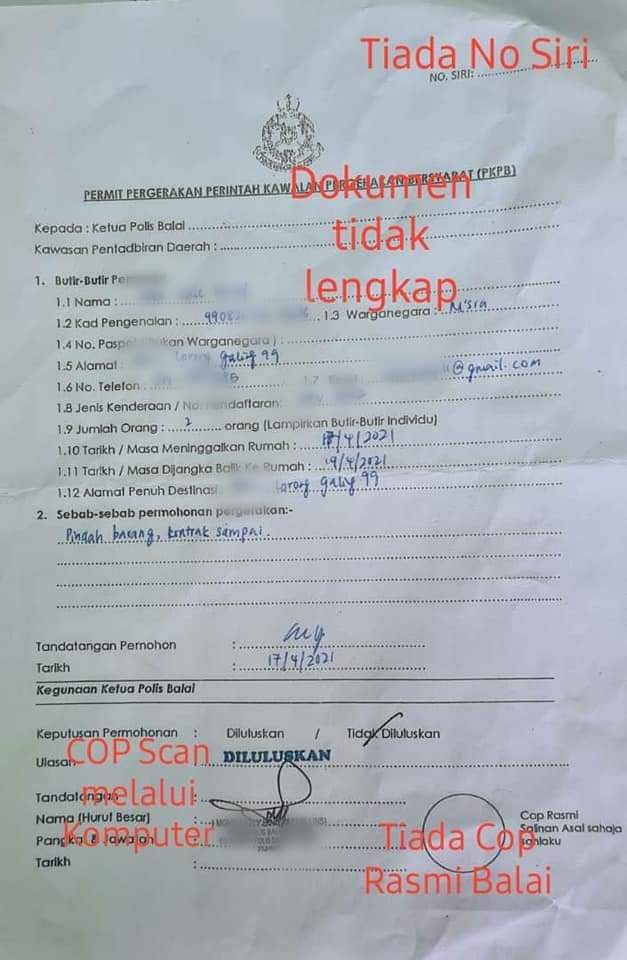 Tiada No Siri
NO. SIRI:
PERMIT PERGERAKAN PERINTAH KAWALAN PERGERAKAN BERSYARAT (PKPB)
Dokumen
tidak
lengkap
Kepada : Ketua Polis Balai
Kawasan Pentadbiran Daerah :
1. Butir-Butir
1.1 Nama :
1.2 Kad Pengenalan : 990 1.3 Warganegara : M'sia
1.4 No. Paspot Bukan Warganegara) :
1.5 Alamat : lorong galing 99
1.6 No. Telefon @gmail.com
1.8 Jenis Kenderaan / No. Pendaftaran:
1.9 Jumlah Orang : 2 orang (Lampirkan Butir-Butir Individu)
1.10 Tarikh / Masa Meninggalkan Rumah : 17/4/2021
1.11 Tarikh / Masa Dijangka Balik Ke Rumah : 19/4/2021
1.12 Alamat Penuh Destinasi lorong galing 99
2. Sebab-sebab permohonan pergerakan:-
Pindah barang, kontrak sampai.
Tandatangan Pemohon :
Tarikh : 17/4/2021
Kegunaan Ketua Polis Balai
Keputusan Permohonan : Diluluskan / Tidak Diluluskan
Ulasan DILULUSKAN
COP Scan
melalui
Komputer
Tandatangan :
Nama (Huruf Besar) :
Pangkat & Jawatan :
Tarikh :
Cop Rasmi
Salinan Asal sahaja
sahlaku
Tiada Cop
Rasmi Balai